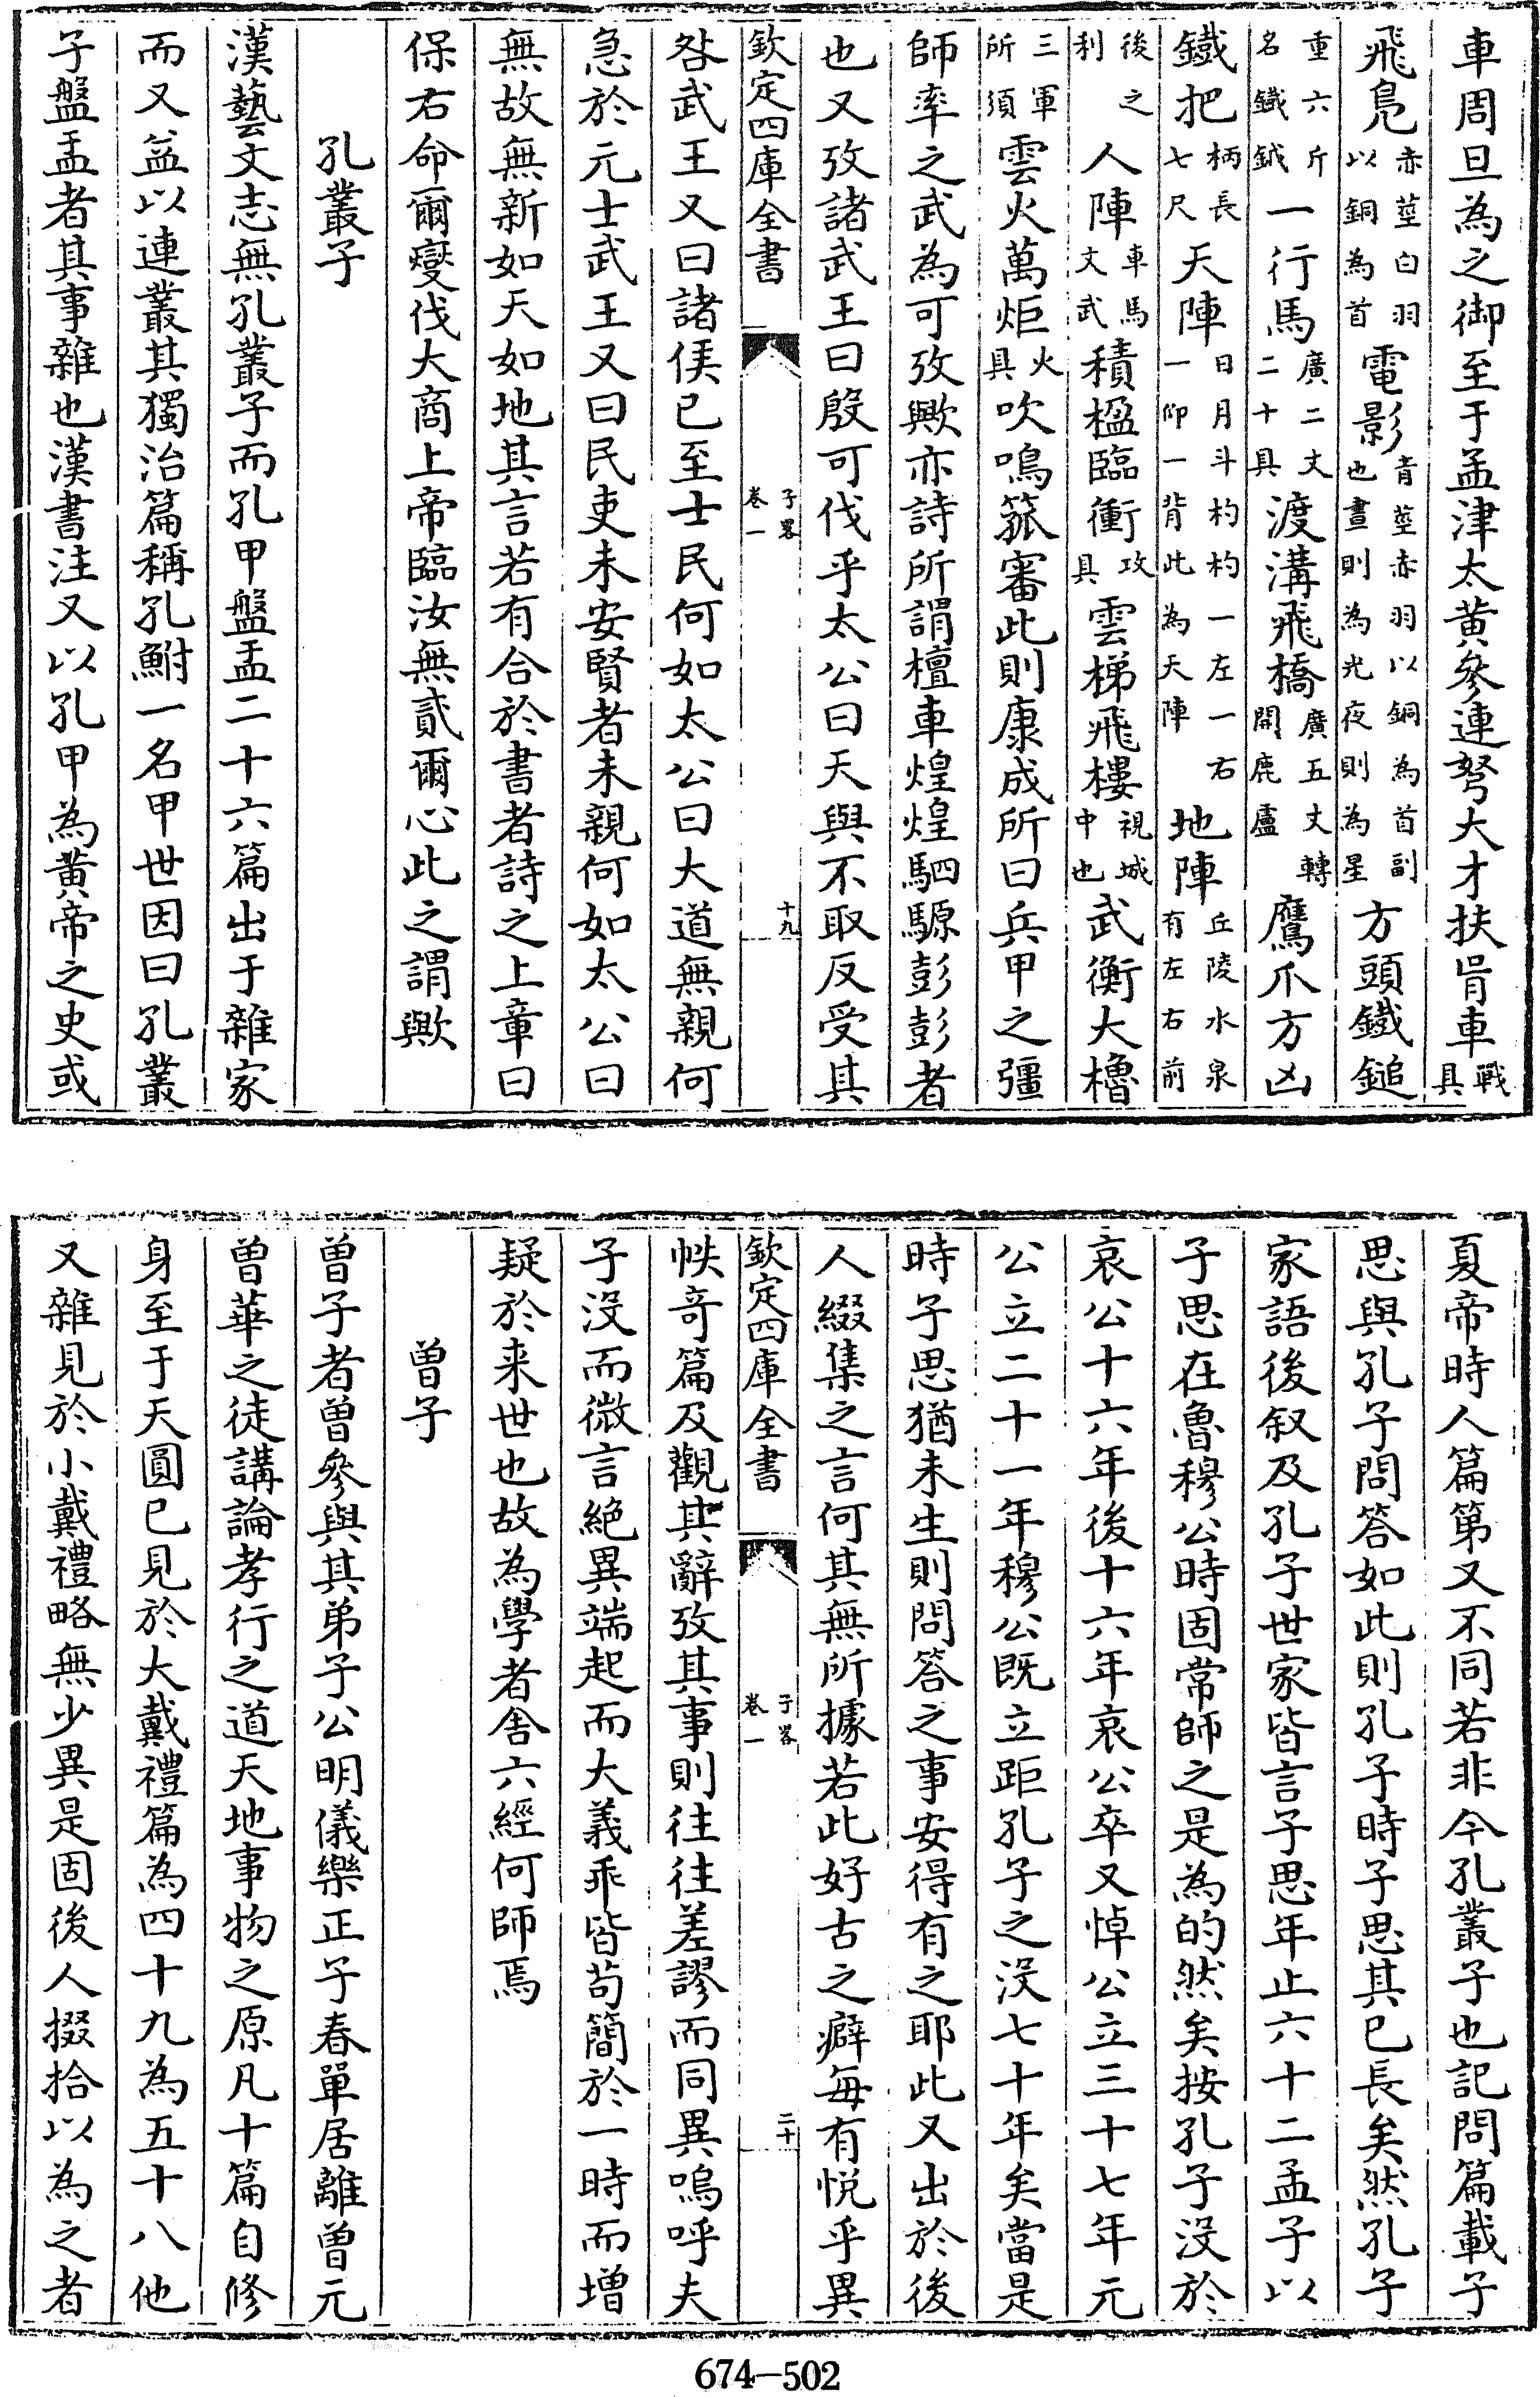 車周旦為之御至于孟津太黄參連弩大才扶胥車戰具
飛鳬赤莖白羽以銅為首電影青莖赤羽以銅為首副也晝則為光夜則為星方頭鐵鎚
重六斤名鐵鉞一行馬廣二丈二十具渡溝飛橋廣五丈轉關鹿盧鷹爪方凶
鐵把柄長七尺天陣日月斗杓杓一左一右一仰一背此為天陣地陣丘陵水泉有左右前
後之利人陣車馬文武積楹臨衝攻具雲梯飛樓視城中也武衡大櫓
三軍所須雲火萬炬火具吹鳴箛審此則康成所曰兵甲之彊
師率之武為可攷歟亦詩所謂檀車煌煌駟騵彭彭者
也又攷諸武王曰殷可伐乎太公曰天與不取反受其
欽定四庫全書 子畧卷一 十九
咎武王又曰諸侯已至士民何如太公曰大道無親何
急於元士武王又曰民吏未安賢者未親何如太公曰
無故無新如天如地其言若有合於書者詩之上章曰
保右命爾燮伐大商上帝臨汝無貳爾心此之謂歟
孔叢子
漢藝文志無孔叢子而孔甲盤盂二十六篇出于雜家
而又益以連叢其獨治篇稱孔鮒一名甲世因曰孔叢
子盤盂者其事雜也漢書注又以孔甲為黄帝之史或
夏帝時人篇第又不同若非今孔叢子也記問篇載子
思與孔子問答如此則孔子時子思其已長矣然孔子
家語後叙及孔子世家皆言子思年止六十二孟子以
子思在魯穆公時固常師之是為的然矣按孔子没於
哀公十六年後十六年哀公卒又悼公立三十七年元
公立二十一年穆公既立距孔子之没七十年矣當是
時子思猶未生則問答之事安得有之耶此又出於後
人綴集之言何其無所據若此好古之癖每有悦乎異
欽定四庫全書 子畧卷一 二十
帙奇篇及觀其辭攷其事則往往差謬而同異嗚呼夫
子没而微言絶異端起而大義乖皆苟簡於一時而增
疑於来世也故為學者舍六經何師焉
曾子
曾子者曾參與其弟子公明儀樂正子春單居離曾元
曾華之徒講論孝行之道天地事物之原凡十篇自修
身至于天圓已見於大戴禮篇為四十九為五十八他
又雜見於小戴禮略無少異是固後人掇拾以為之者
674—502